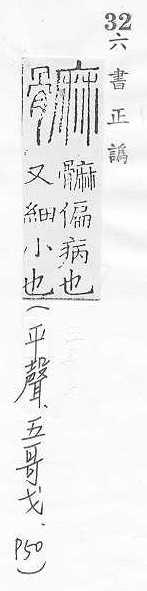 32
六書正譌
髍
髍偏病也
又細小也
(平聲、五哥戈、P50)